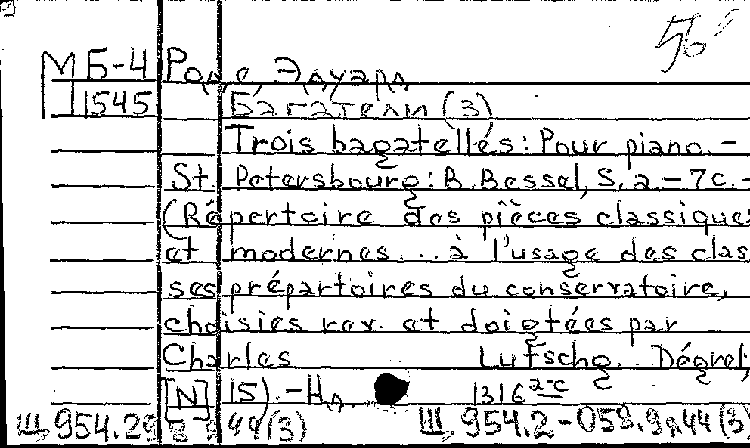 56
МБ-4 Роде, Эдуард
1545 Багатели (3)
Trois bagatelles: Pour piano. -
St. Petersbourg: B. Bessel, S. a. - 7c. -
(Répertoire des pièces classiques
et modernes... à l'usage des clas
ses préparatoires du conservatoire,
choisies rev. et doigtées par
Charles Lutschg. Dégré,
[N] 15) - Н.д. 1316 2-с
Ш 954.29 44(3) Ш 954.2-058.9я44(3)